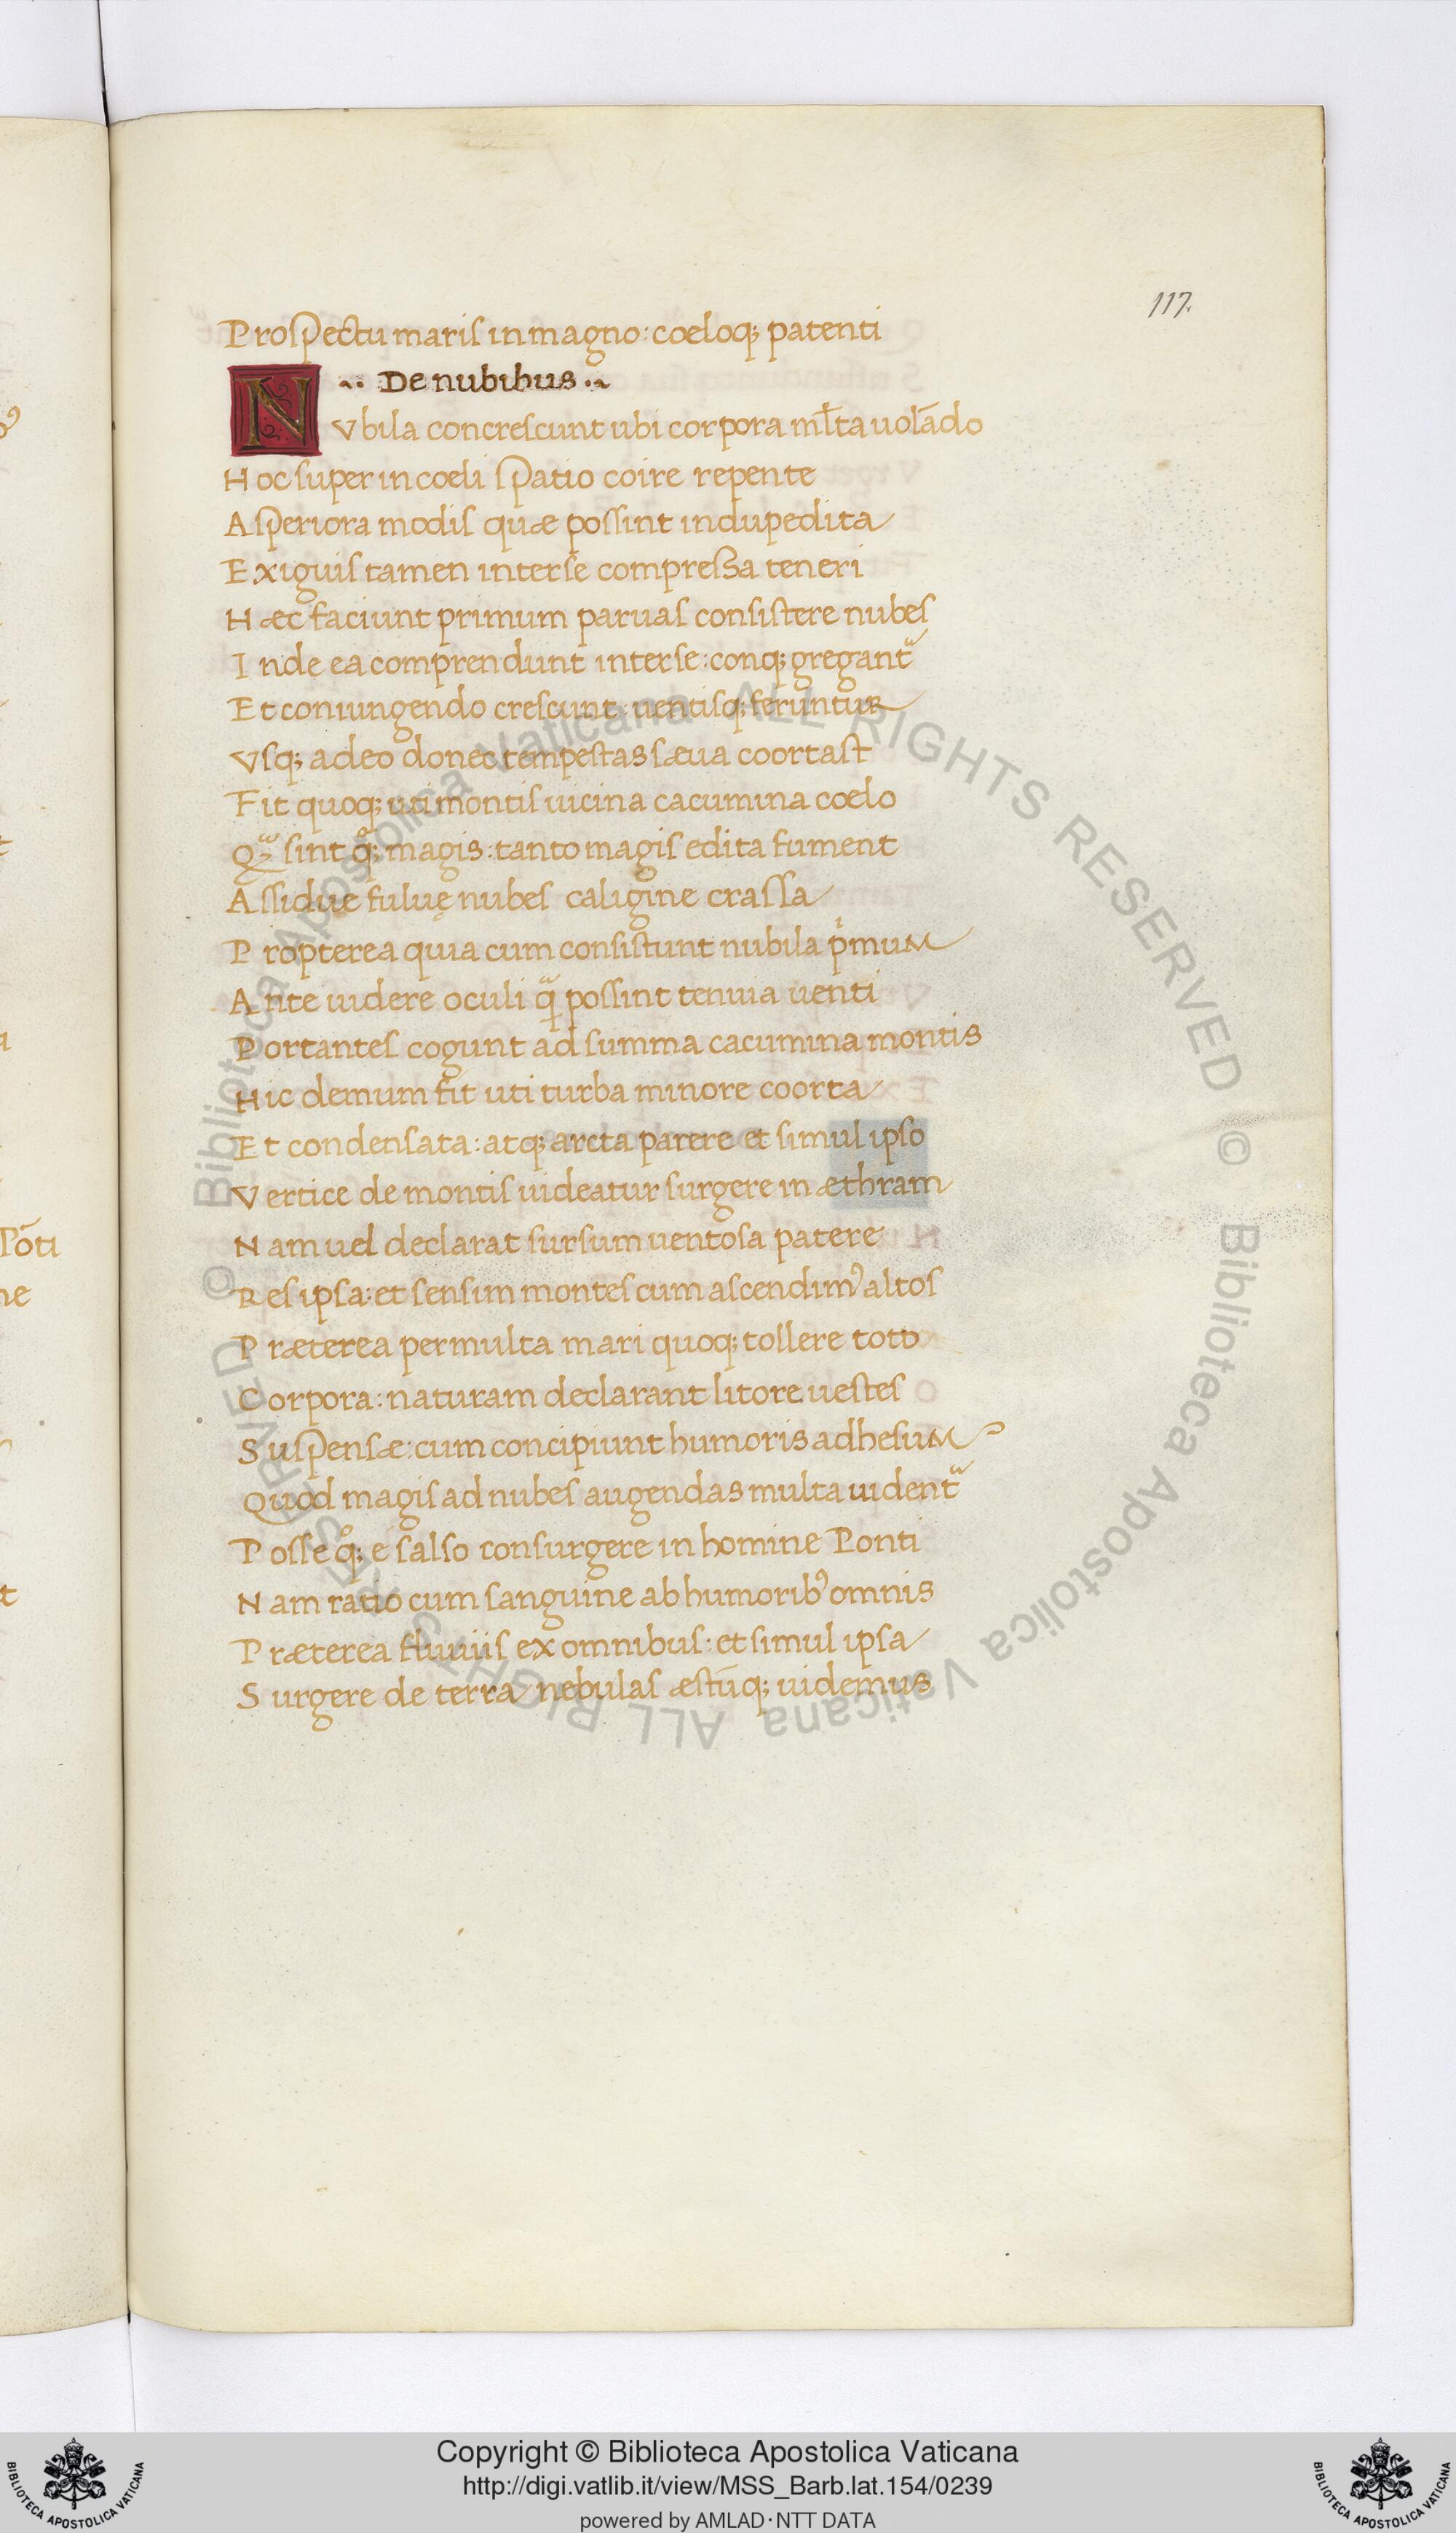 117.
Prospectu maris in magno: coeloq; patenti
De nubibus
NVbila concrescunt ubi corpora ml̄ta uolādo
Hoc super in coeli spatio coire repente
Asperiora modis quæ possint indupedita
Exiguis tamen inter se compressa teneri
Hæc faciunt primum paruas consistere nubes
Inde ea comprendunt inter se: conq; gregant᷑
Et coniungendo crescunt: uentisq; feruntur
Vsq; adeo donec tempestas sæua coortast
Fit quoq; uti montis uicina cacumina coelo
sint qͦ; magis: tanto magis edita fument
Assidue fuluę nubes caligine crassa
Propterea quia cum consistunt nubila pͥmum
Ante uidere oculi qᷓ possint tenuia uenti
Portantes cogunt ad summa cacumina montis
Hic demum fit uti turba minore coorta
Et condensata: atq; arcta parere et simul ipso
Vertice de montis uideatur surgere in æthram
Nam uel declarat sursum uentosa patere
Res ipsa: et sensim montes cum ascendimꝰ altos
Præterea permulta mari quoq; tollere toto
Corpora: naturam declarant litore uestes
Suspensæ: cum concipiunt humoris adhesum
Quod magis ad nubes augendas multa uident᷑
Posse qͦ; e salso consurgere in homine Ponti
Nam ratio cum sanguine ab humoribꝰ omnis
Præterea fluuiis ex omnibus: et simul ipsa
Surgere de terra nebulas æstūq; uidemus
© Biblioteca Apostolica Vaticana ALL RIGHTS RESERVED © Biblioteca Apostolica Vaticana ALL RIGHTS RESERVED
Copyright © Biblioteca Apostolica Vaticana
http://digi.vatlib.it/view/MSS_Barb.lat.154/0239
powered by AMLAD·NTT DATA
BIBLIOTECA APOSTOLICA VATICANA
BIBLIOTECA APOSTOLICA VATICANA